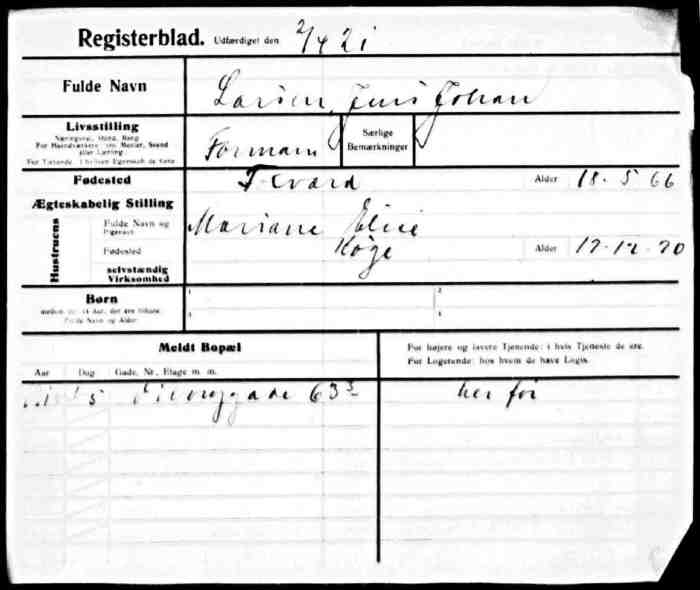 Registerblad. Udfærdiget den 2/4 21
Fulde Navn
Larsen, Jens Johan
Livsstilling
Næringsvej, Haand, Rang
For Haandværkere om Mester, Svend
eller Lærling
For Tietende i hvilken Egenskab de tiene
Formann
Særlige
Bemærkninger
Fødested
Alder 18-5 66
Ægteskabelig Stilling
Hustruens
Fulde Navn og
Pigenavn
Mariane Elise
Fødested
Køge
Alder 12-12-70
selvstændig
Virksomhed
Børn
mellem 10-14 Aar, det ere tilhuse
Fulde Navn og Alder
1
2
3
4
Meldt Bopæl
For højere og lavere Tjenende: i hvis Tjeneste de ere.
For Logerende: hos hvem de have Logis.
Aar Dag Gade, Nr., Etage m. m.
5 63 3
her før